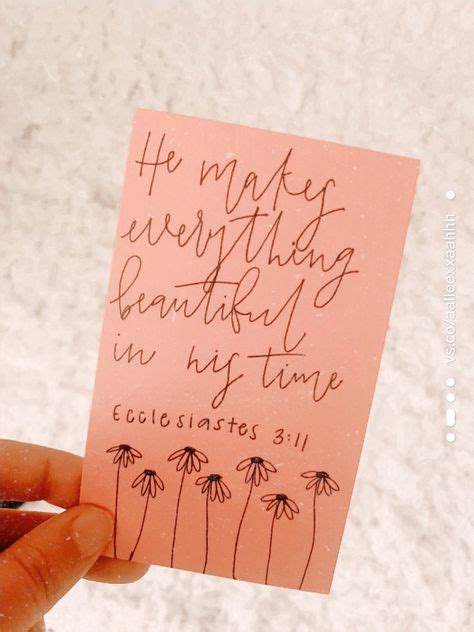 He makes
everything
beautiful
in his time
Ecclesiastes 3:11
vs.co/aalleexxaahhh